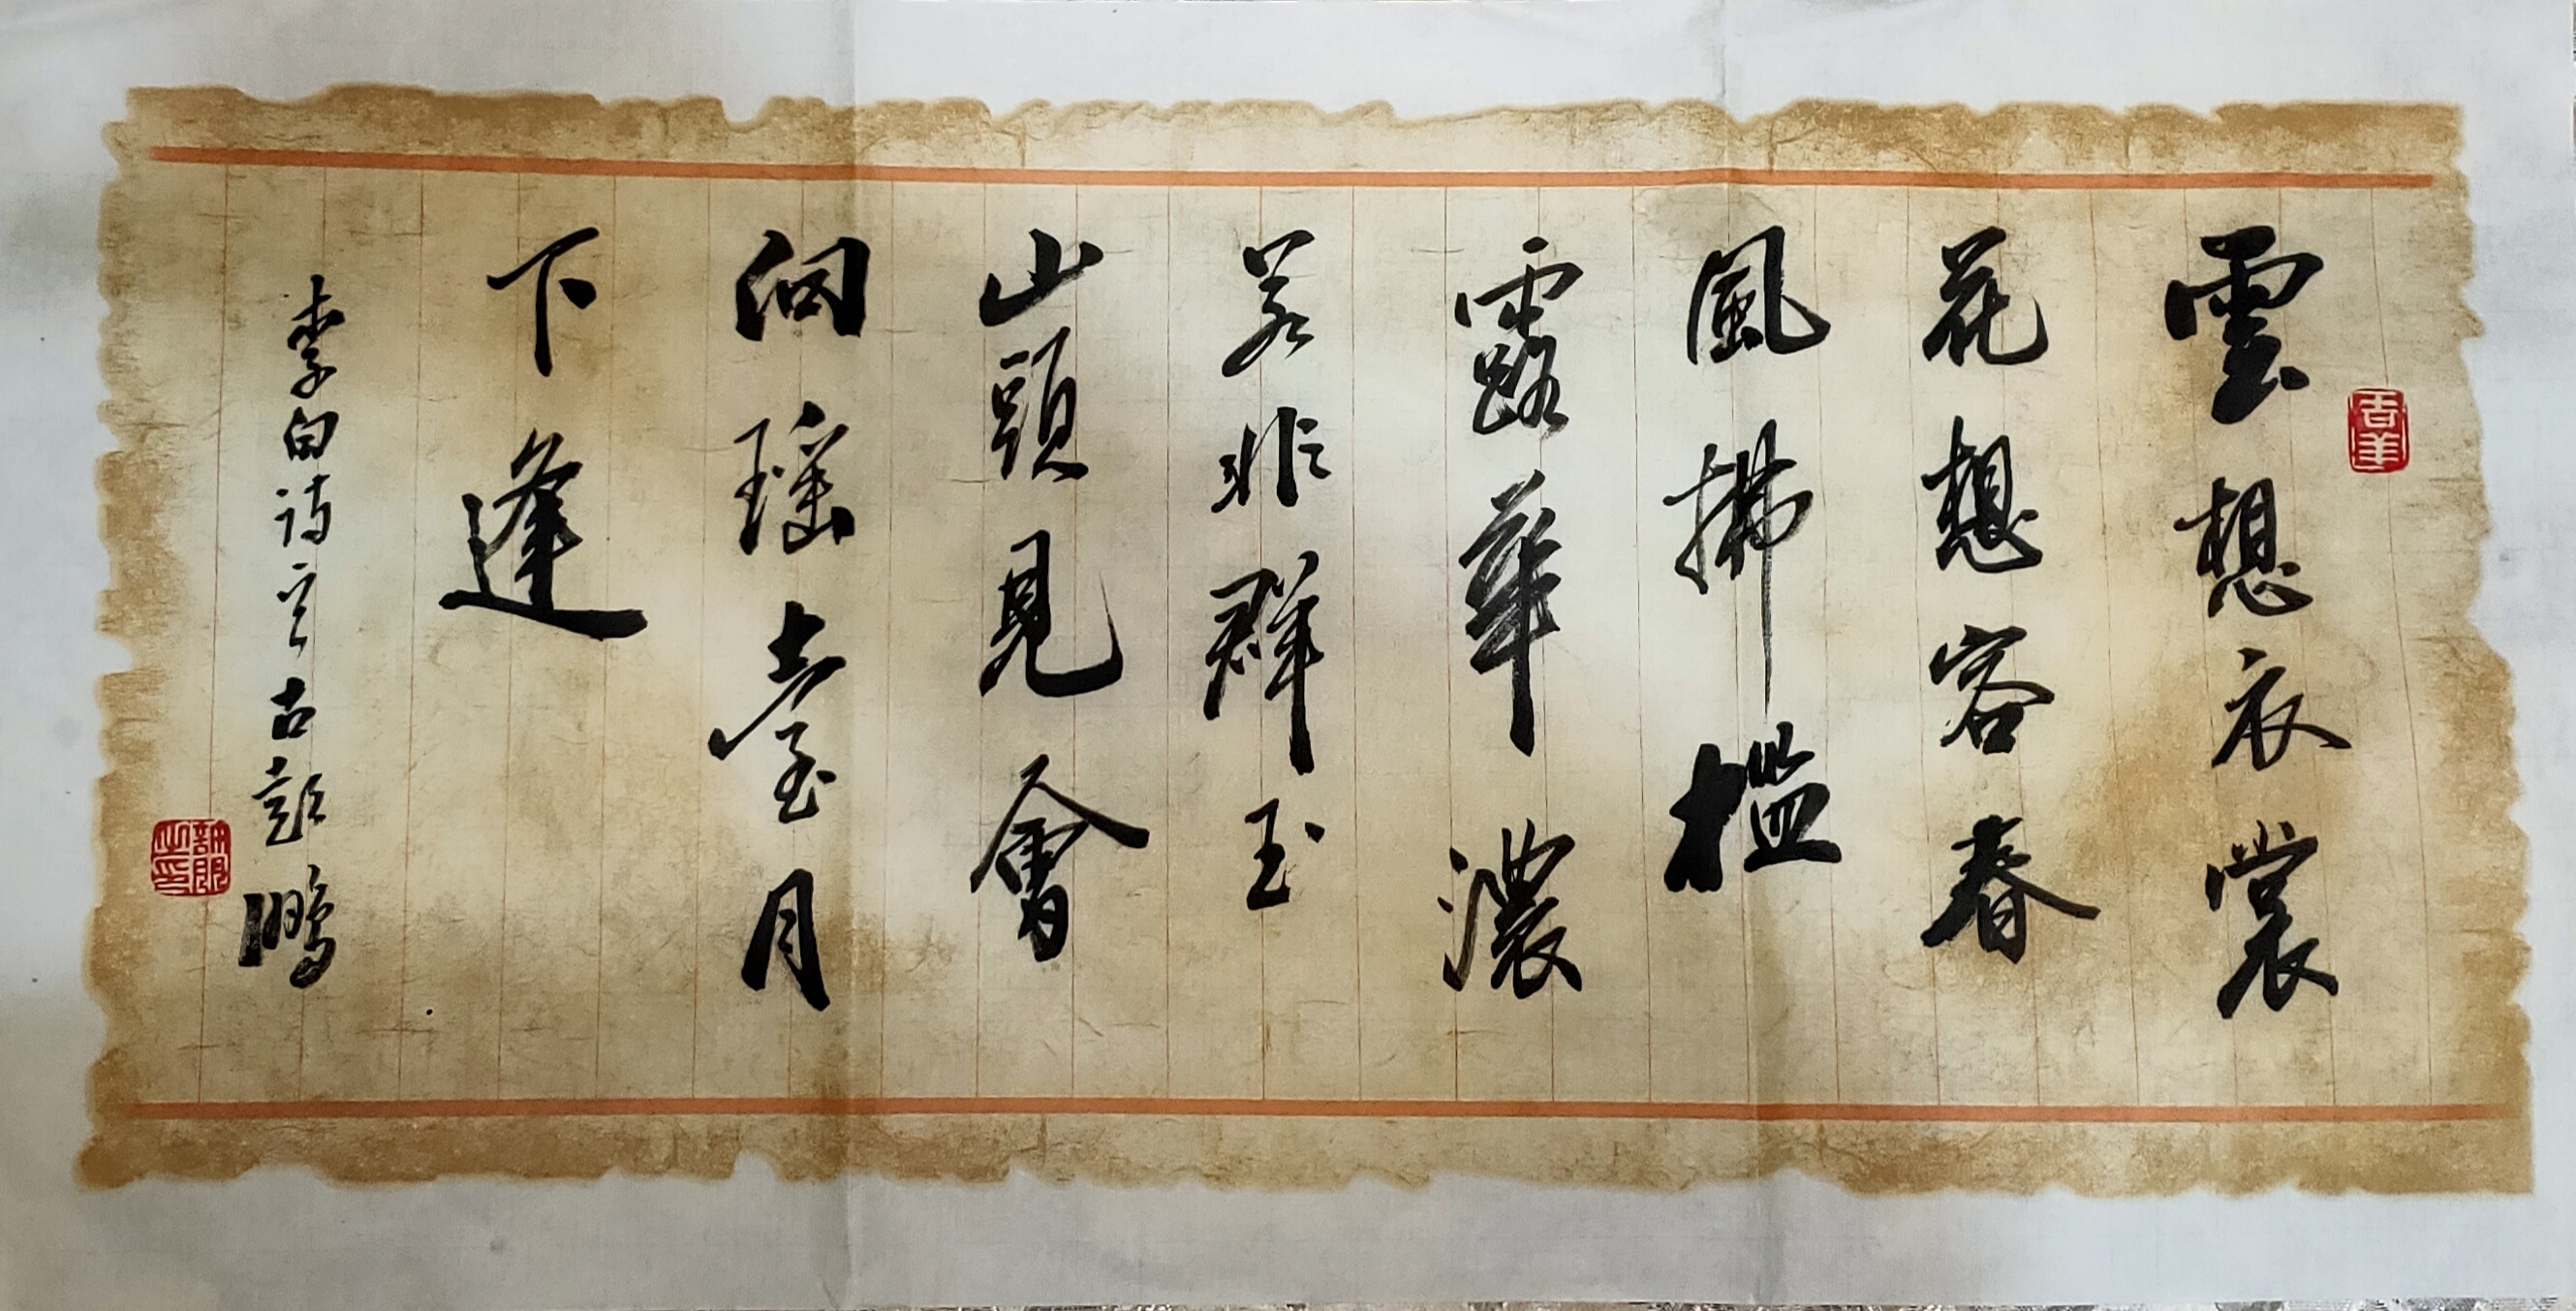 雲想衣裳
花想容春
風拂檻
露華濃
若非群玉
山頭見會
向瑤臺月
下逢
李白詩一首 古彭 鵬